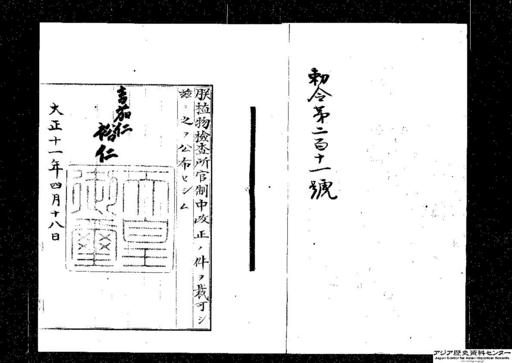 勅令第二百十一號
朕植物檢査所官制中改正ノ件ヲ裁可シ
茲ニ之ヲ公布セシム
嘉仁
裕仁
天皇御璽
大正十一年四月十八日
アジア歴史資料センター
Japan Center for Asian Historical Records